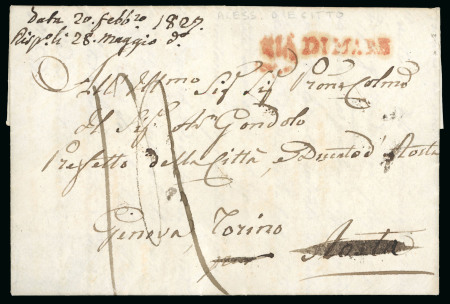 Data 20. febbro 1827.
Rispoli 28. Maggio do.
ALESS. D'EGITTO
DI MARE
All Illmo Sigr Sigr Prone Colmo
Il Sigr Avo Gondolo
Prefetto della Città, e Ducato d'Aosta
Genova, Torino
Aosta